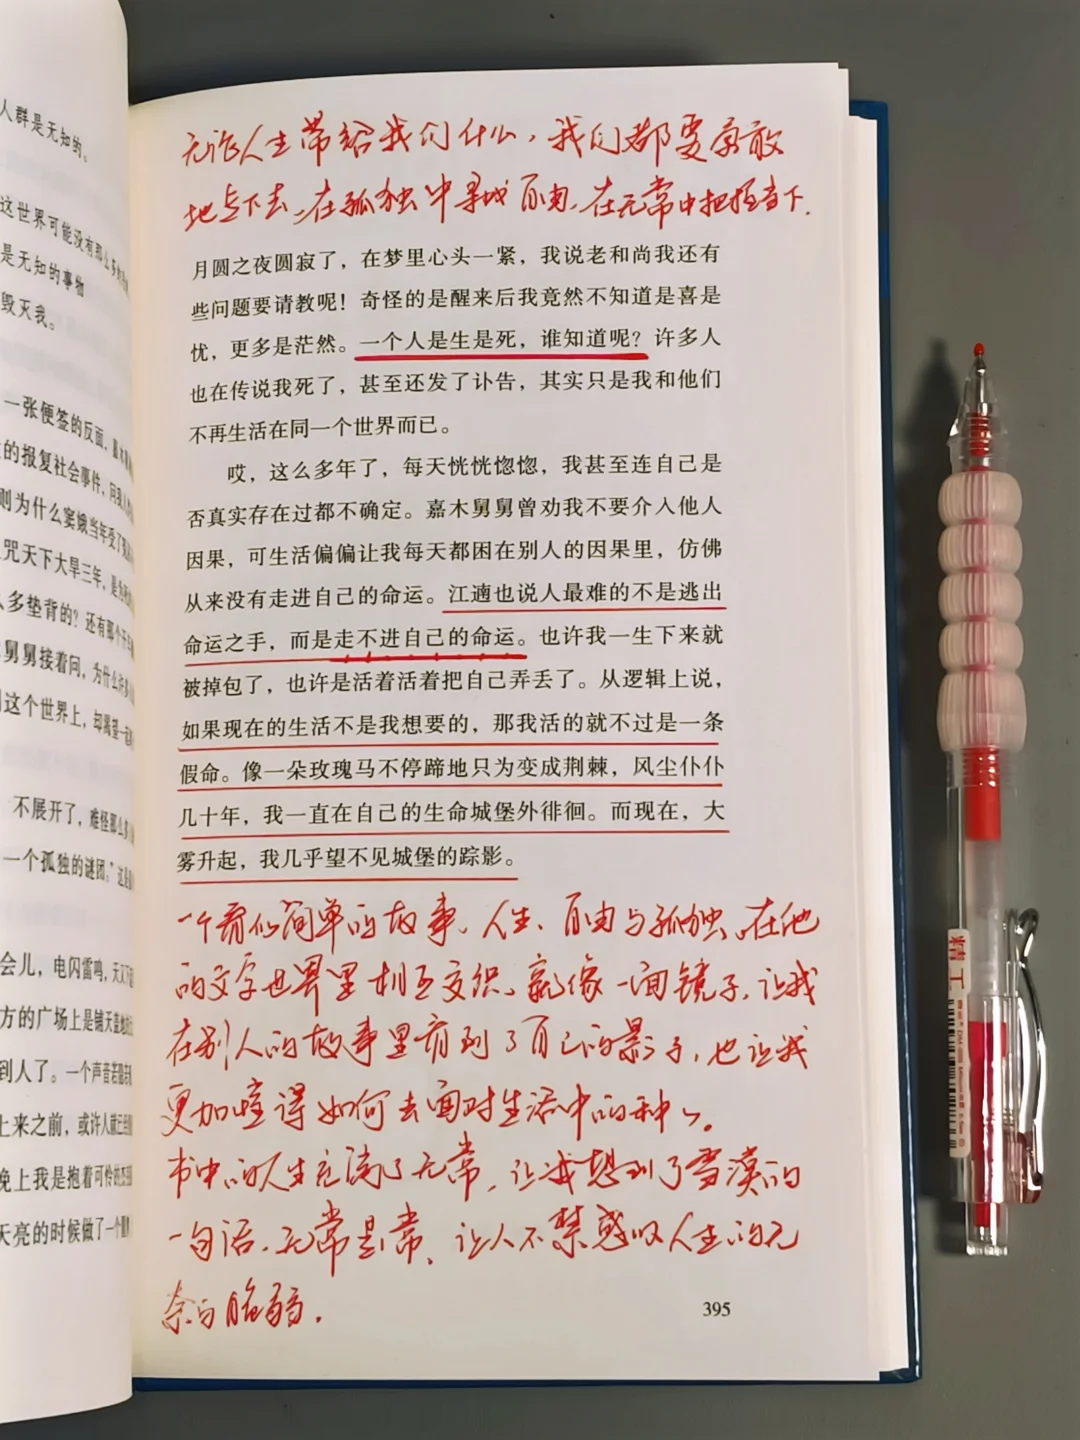 人群是无知的。
这世界可能没有那么多
是无知的事物
毁灭我。
一张便签的反面,
的报复社会事件,
则为什么窦娥当年受了
咒天下大旱三年,是
多垫背的?还有那个
舅舅接着问,为什么许多
这个世界上,却渴望一
不展开了,难怪那么多
一个孤独的谜团。”这是
会儿,电闪雷鸣,天又下
方的广场上是铺天盖地
到人了。一个声音若隐若
上来之前,或许人就已经
晚上我是抱着可怜的
天亮的时候做了一个
无论人生带给我们什么,我们都要勇敢
地走下去,在孤独中寻找自由,在无常中把握当下.
月圆之夜圆寂了,在梦里心头一紧,我说老和尚我还有
些问题要请教呢!奇怪的是醒来后我竟然不知道是喜是
忧,更多是茫然。一个人是生是死,谁知道呢?许多人
也在传说我死了,甚至还发了讣告,其实只是我和他们
不再生活在同一个世界而已。
哎,这么多年了,每天恍恍惚惚,我甚至连自己是
否真实存在过都不确定。嘉木舅舅曾劝我不要介入他人
因果,可生活偏偏让我每天都困在别人的因果里,仿佛
从来没有走进自己的命运。江遹也说人最难的不是逃出
命运之手,而是走不进自己的命运。也许我一生下来就
被掉包了,也许是活着活着把自己弄丢了。从逻辑上说,
如果现在的生活不是我想要的,那我活的就不过是一条
假命。像一朵玫瑰马不停蹄地只为变成荆棘,风尘仆仆
几十年,我一直在自己的生命城堡外徘徊。而现在,大
雾升起,我几乎望不见城堡的踪影。
一个看似简单的故事,人生、自由与孤独,在他
的文字世界里相互交织,就像一面镜子,让我
在别人的故事里看到了自己的影子,也让我
更加懂得如何去面对生活中的种种。
书中的人生充满了无常,让我想到了雪漠的
一句话,无常是常,让人不禁感叹人生的无
奈与脆弱.
395
精工